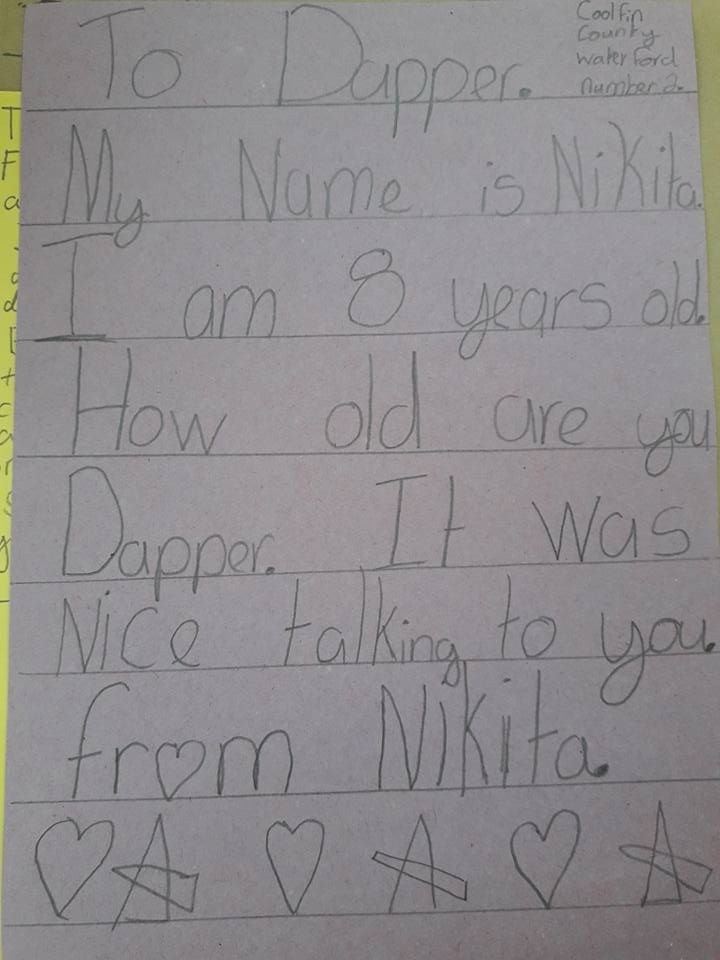 Coolfin
County
waterford
number 2.
To Dapper.
My Name is Nikita.
I am 8 years old.
How old are you
Dapper. It was
Nice talking to you.
from Nikita.
T
F
a